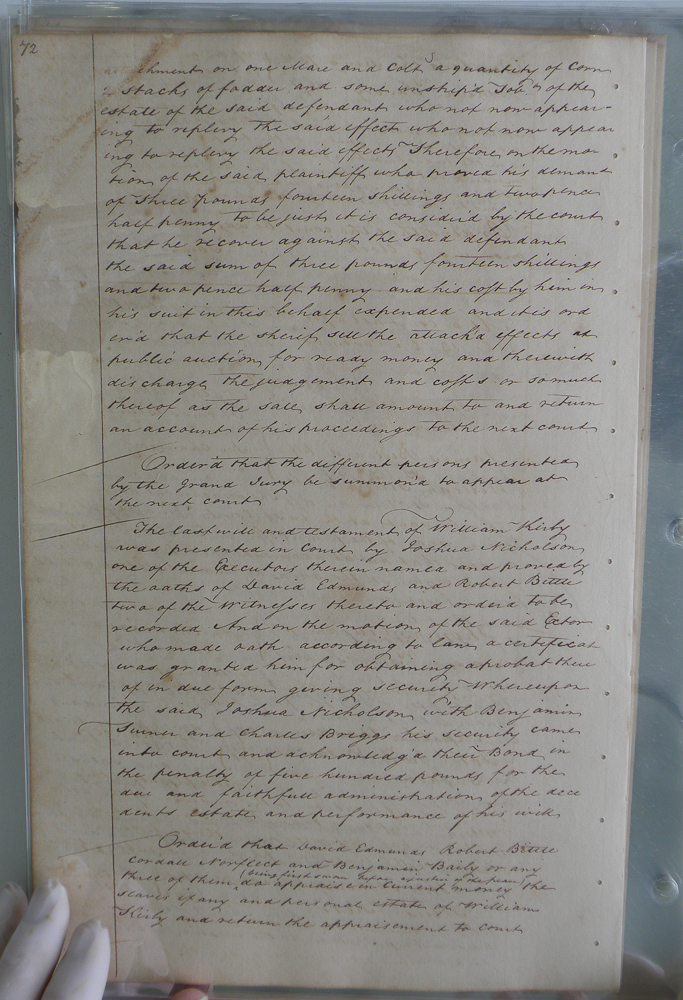 72
chment on one Mare and Colt a quantity of Corn
2 stacks of fodder and some unstrip'd Tob.o of the
estate of the said defendant who not now appear-
ing to replevy the said effects who not now appear
ing to replevy the said effects Therefore on the mo
tion of the said plaintiff who proved his demand
of three pounds fourteen shillings and two pence
half penny to be just it is consider'd by the court
that he recover against the said defendant
the said sum of three pounds fourteen shillings
and two pence half penny and his cost by him in
his suit in this behalf expended and it is ord
er'd that the sherif sell the attach'd effects at
public auction for ready money and therewith
discharge the judgement and costs or so much
thereof as the sale shall amount to and return
an account of his proceedings to the next court
Order'd that the different persons presented
by the Grand Jury be summon'd to appear at
the next court
The last will and testament of William Kirby
was presented in Court by Joshua Nicholson
one of the Executors therein named and proved by
the oaths of David Edmunds and Robert Bittle
two of the Witnesses thereto and order'd to be
recorded And on the motion of the said Exctor
who made oath according to law a certificat
was granted him for obtaining a probat there
of in due form giving security Whereupon
the said Joshua Nicholson with Benjamin
Turner and Charles Briggs his security came
into court and acknowledg'd their Bond in
the penalty of five hundred pounds for the
due and faithfull administration of the dece
dents estate and performance of his will
Order'd that David Edmunds Robert Bittle
Cordall Norfleet and Benjamin Baily or any
three of them being first sworn before a justice of the peace do appraise in Current money the
slaves if any and personal estate of William
Kirby and return the appraisement to court